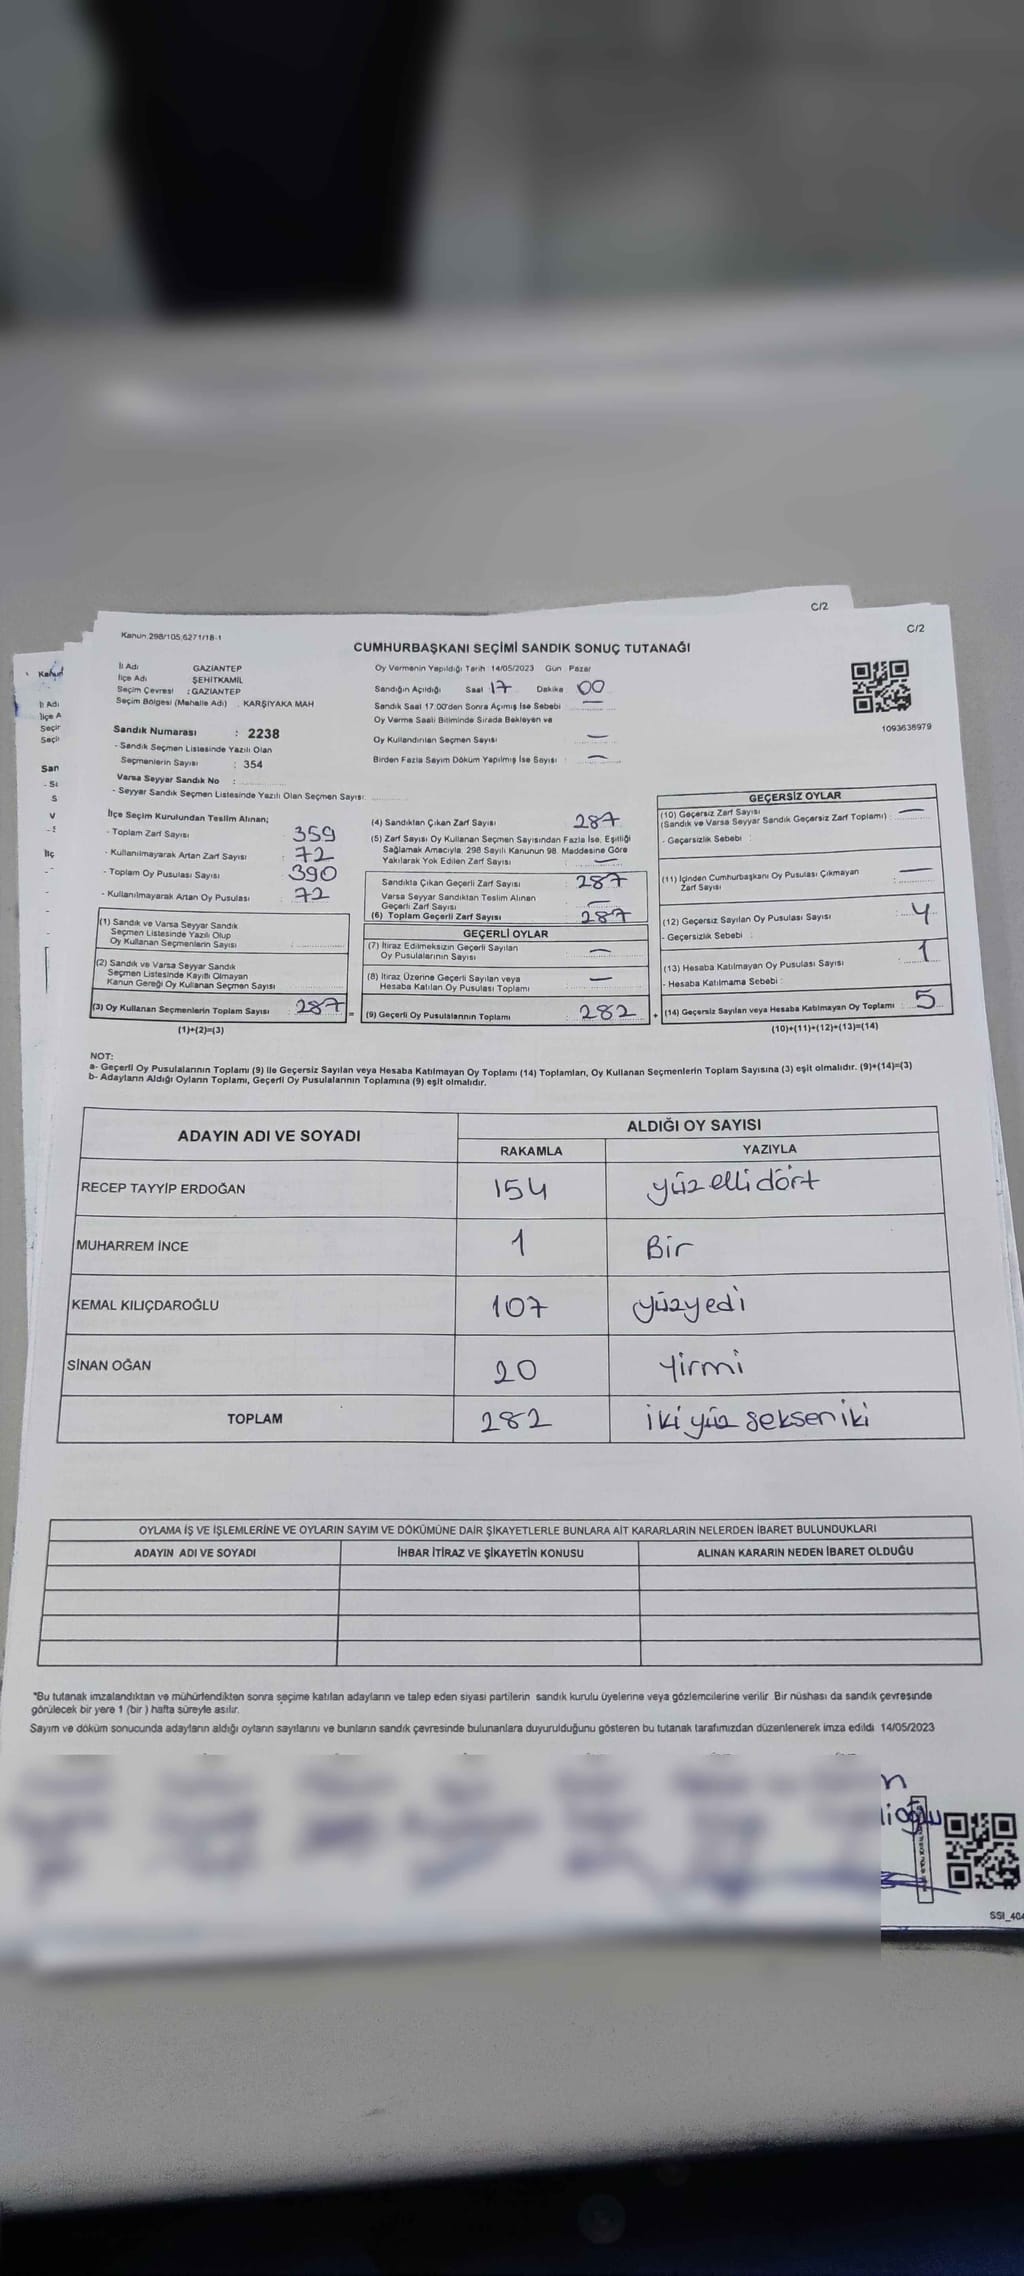 C/2
C/2
Kanun.298/105,6271/18-1
CUMHURBAŞKANI SEÇİMİ SANDIK SONUÇ TUTANAĞI
İl Adı GAZİANTEP
İlçe Adı ŞEHİTKAMİL
Seçim Çevresi : GAZİANTEP
Seçim Bölgesi (Mahalle Adı) . KARŞIYAKA MAH
Sandık Numarası : 2238
- Sandık Seçmen Listesinde Yazılı Olan
Seçmenlerin Sayısı : 354
Varsa Seyyar Sandık No :
- Seyyar Sandık Seçmen Listesinde Yazılı Olan Seçmen Sayısı:
Oy Vermenin Yapıldığı Tarih 14/05/2023 Gün Pazar
Sandığın Açıldığı Saat 17 Dakika 00
Sandık Saat 17:00'den Sonra Açımış İse Sebebi —
Oy Verme Saati Bitiminde Sırada Bekleyen ve
Oy Kullandırılan Seçmen Sayısı —
Birden Fazla Sayım Döküm Yapılmış İse Sayısı : —
1093638979
İlçe Seçim Kurulundan Teslim Alınan;
- Toplam Zarf Sayısı 359
- Kullanılmayarak Artan Zarf Sayısı : 72
- Toplam Oy Pusulası Sayısı : 390
- Kullanılmayarak Artan Oy Pusulası : 72
(1) Sandık ve Varsa Seyyar Sandık
Seçmen Listesinde Yazılı Olup
Oy Kullanan Seçmenlerin Sayısı :
(2) Sandık ve Varsa Seyyar Sandık
Seçmen Listesinde Kayıtlı Olmayan
Kanun Gereği Oy Kullanan Seçmen Sayısı :
(3) Oy Kullanan Seçmenlerin Toplam Sayısı : 287 =
(1)+(2)=(3)
(4) Sandıktan Çıkan Zarf Sayısı : 287
(5) Zarf Sayısı Oy Kullanan Seçmen Sayısından Fazla İse, Eşitliği
Sağlamak Amacıyla, 298 Sayılı Kanunun 98. Maddesine Göre
Yakılarak Yok Edilen Zarf Sayısı : —
Sandıkta Çıkan Geçerli Zarf Sayısı : 287
Varsa Seyyar Sandıktan Teslim Alınan
Geçerli Zarf Sayısı : —
(6) Toplam Geçerli Zarf Sayısı : 287
GEÇERLİ OYLAR
(7) İtiraz Edilmeksizin Geçerli Sayılan
Oy Pusulalarının Sayısı : —
(8) İtiraz Üzerine Geçerli Sayılan veya
Hesaba Katılan Oy Pusulası Toplamı : —
(9) Geçerli Oy Pusulalarının Toplamı : 282 +
GEÇERSİZ OYLAR
(10) Geçersiz Zarf Sayısı
(Sandık ve Varsa Seyyar Sandık Geçersiz Zarf Toplamı) : —
- Geçersizlik Sebebi :
(11) İçinden Cumhurbaşkanı Oy Pusulası Çıkmayan
Zarf Sayısı : —
(12) Geçersiz Sayılan Oy Pusulası Sayısı : 4
- Geçersizlik Sebebi :
(13) Hesaba Katılmayan Oy Pusulası Sayısı : 1
- Hesaba Katılmama Sebebi :
(14) Geçersiz Sayılan veya Hesaba Katılmayan Oy Toplamı : 5
(10)+(11)+(12)+(13)=(14)
NOT:
a- Geçerli Oy Pusulalarının Toplamı (9) ile Geçersiz Sayılan veya Hesaba Katılmayan Oy Toplamı (14) Toplamları, Oy Kullanan Seçmenlerin Toplam Sayısına (3) eşit olmalıdır. (9)+(14)=(3)
b- Adayların Aldığı Oyların Toplamı, Geçerli Oy Pusulalarının Toplamına (9) eşit olmalıdır.
ADAYIN ADI VE SOYADI ALDIĞI OY SAYISI
RAKAMLA YAZIYLA
RECEP TAYYİP ERDOĞAN 154 yüzellidört
MUHARREM İNCE 1 Bir
KEMAL KILIÇDAROĞLU 107 yüzyedi
SİNAN OĞAN 20 Yirmi
TOPLAM 282 ikiyüz sekseniki
OYLAMA İŞ VE İŞLEMLERİNE VE OYLARIN SAYIM VE DÖKÜMÜNE DAİR ŞİKAYETLERLE BUNLARA AİT KARARLARIN NELERDEN İBARET BULUNDUKLARI
ADAYIN ADI VE SOYADI İHBAR İTİRAZ VE ŞİKAYETİN KONUSU ALINAN KARARIN NEDEN İBARET OLDUĞU
*Bu tutanak imzalandıktan ve mühürlendikten sonra seçime katılan adayların ve talep eden siyasi partilerin sandık kurulu üyelerine veya gözlemcilerine verilir Bir nüshası da sandık çevresinde
görülecek bir yere 1 (bir ) hafta süreyle asılır.
Sayım ve döküm sonucunda adayların aldığı oyların sayılarını ve bunların sandık çevresinde bulunanlara duyurulduğunu gösteren bu tutanak tarafımızdan düzenlenerek imza edildi 14/05/2023